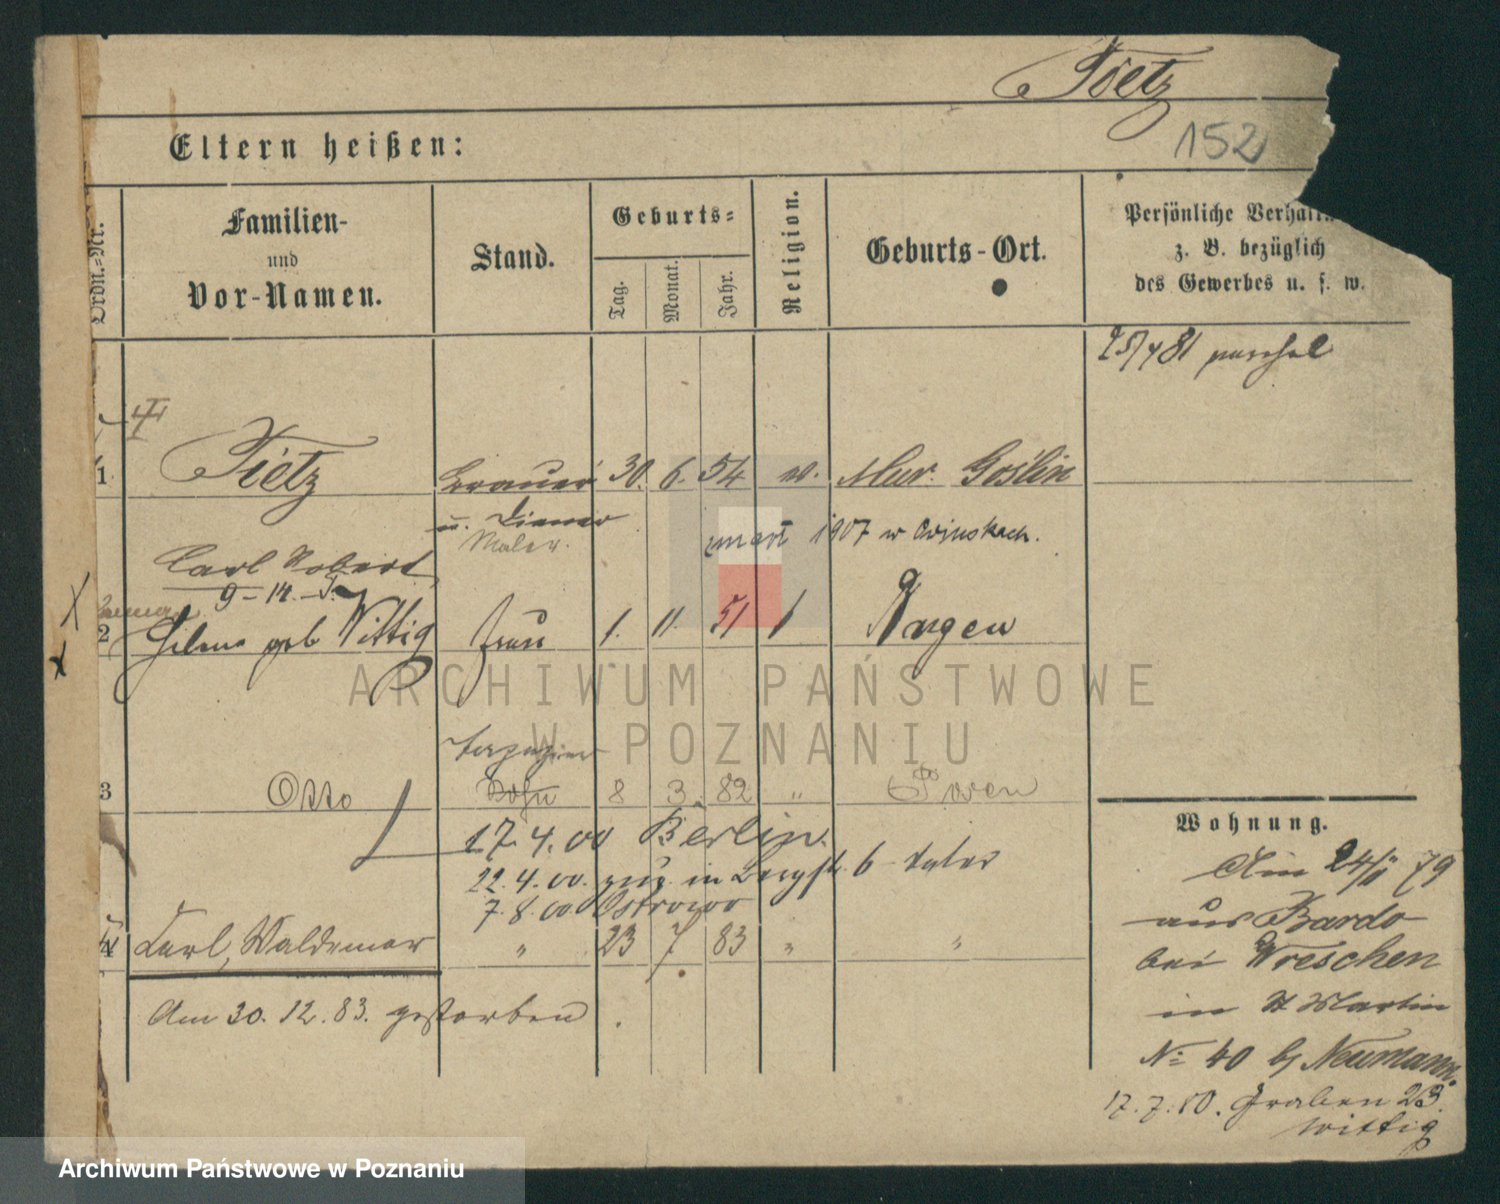 Tietz
152
Eltern heißen:
Ordn.-Nr.
Familien-
und
Vor-Namen.
Stand.
Geburts-
Tag.
Monat.
Jahr.
Religion.
Geburts-Ort.
Persönliche Verhält
z. B. bezüglich
des Gewerbes u. s. w.
81
1 Tietz Brauer 30. 6. 54 Mur. Goslin
u. Diener
Maler.
1907 w
Carl Robert
9-14
2 geb Wittig Frau 1. 11. 51 Argen
3 Otto Sohn 8 3. 82 " Posen
17. 4. 00 Berlin.
22. 4. 00. in Bergstr. 6
7. 8. 00 Ostrowo
4 Carl, Waldemar " 23 7 83 " "
Am 30. 12. 83. gestorben.
Wohnung.
Am 24/11 79
aus Bardo
bei Wreschen
in St Martin
No 40 b/ Neumann.
17. 7. 80. Graben 23.
Wittig
ARCHIWUM PAŃSTWOWE
W POZNANIU
Archiwum Państwowe w Poznaniu